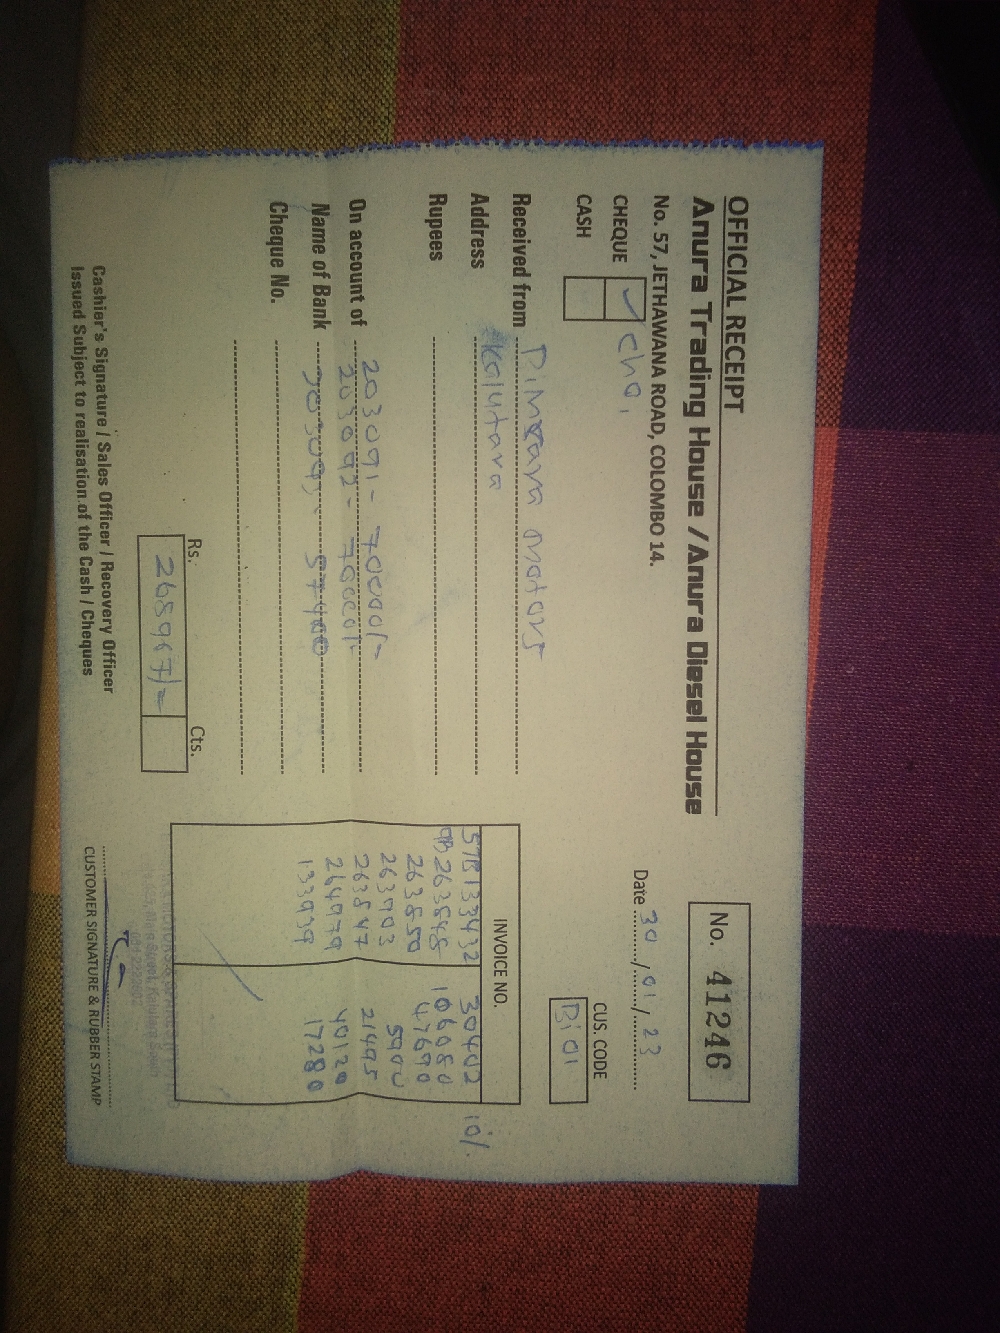 OFFICIAL RECEIPT
Anura Trading House / Anura Diesel House
No. 57, JETHAWANA ROAD, COLOMBO 14.
No. 41246
Date 30/01/23
CHEQUE ✓ chq,
CASH
CUS. CODE
Received from Dimzara motors
Address Kalutara
Rupees
On account of 203091- 70000/=
203092- 70000/=
Name of Bank 57400
Cheque No.
INVOICE NO.
57B133432 30402 10%
263848 106080
263850 47690
263903 5900
263847 21495
264979 40120
133939 17280
Rs. Cts.
268967/=
Cashier's Signature / Sales Officer / Recovery Officer
Issued Subject to realisation of the Cash / Cheques
CUSTOMER SIGNATURE & RUBBER STAMP